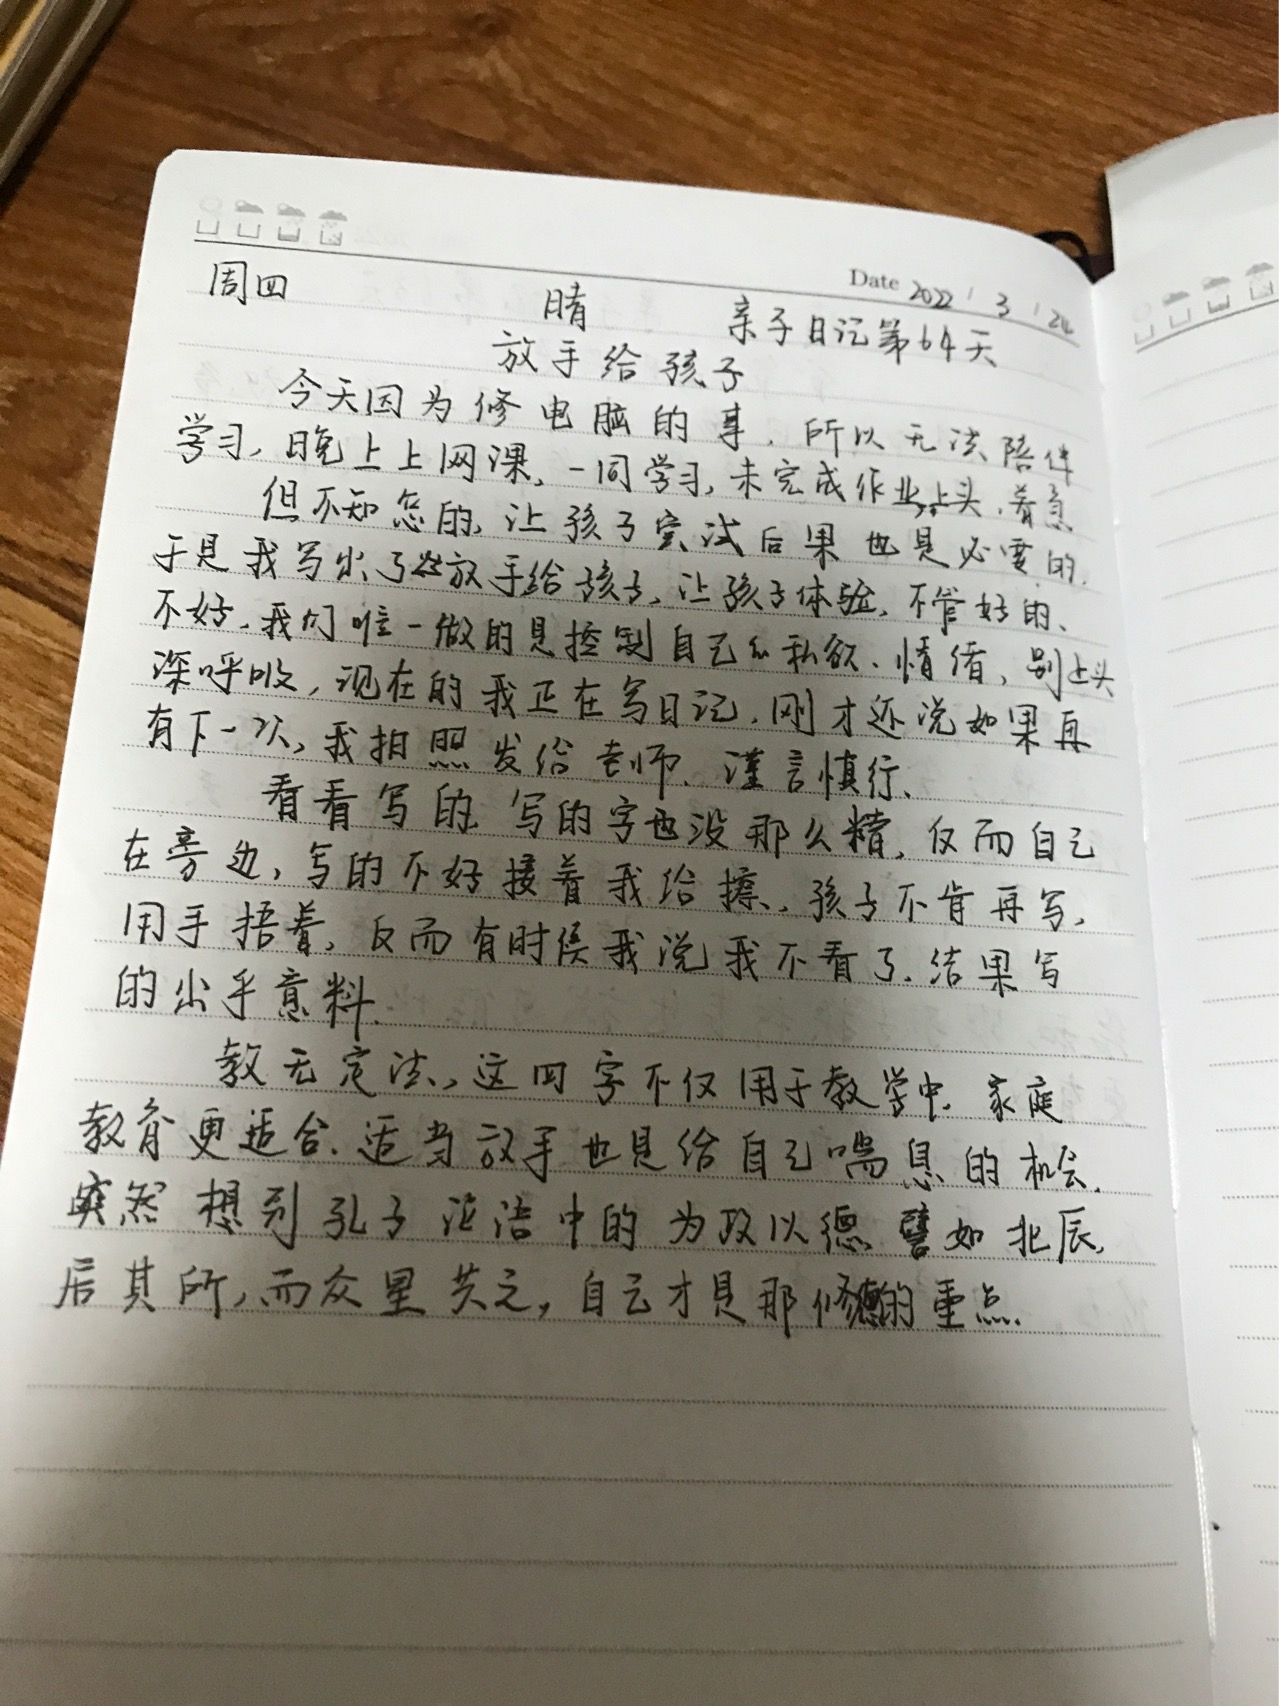 Date 2022 / 3 / 24
周四 晴 亲子日记第64天
放手给孩子
今天因为修电脑的事，所以无法陪伴
学习，晚上上网课，一同学习，未完成作业，上头，着急
但不知怎的，让孩子尝试后果也是必要的，
于是我写出了放手给孩子，让孩子体验，不管好的、
不好，我们唯一做的是控制自己的私欲、情绪，别上头
深呼吸，现在的我正在写日记，刚才还说如果再
有下一次，我拍照发给老师，谨言慎行、
看看写的，写的字也没那么精，反而自己
在旁边，写的不好接着我给擦、孩子不肯再写，
用手捂着，反而有时候我说我不看了，结果写
的出乎意料、
教无定法，这四字不仅用于教学中，家庭
教育更适合，适当放手也是给自己喘息的机会，
突然想到孔子论语中的为政以德，譬如北辰，
居其所，而众星共之，自己才是那修德的重点、